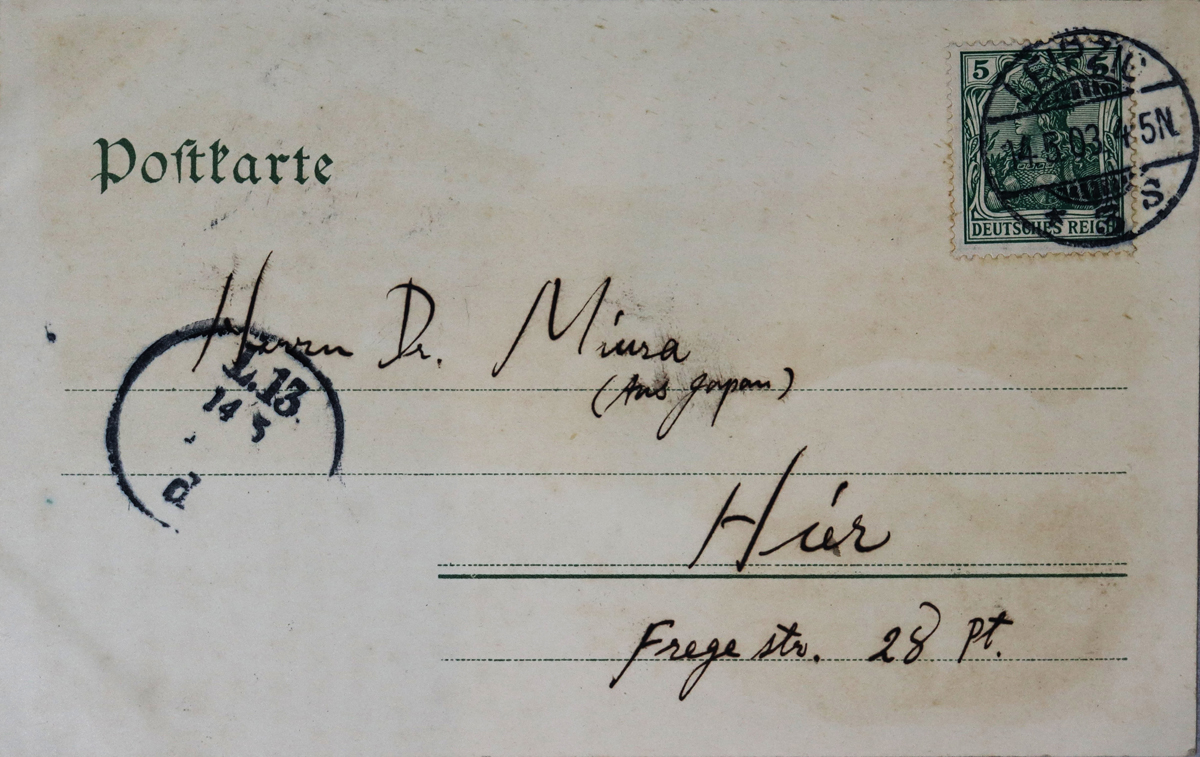 5 5
LEIPZIG
14.5.03. 4-5N.
* 8 S
DEUTSCHES REICH
Postkarte
Herrn Dr. Miura
(Aus Japan)
L.13.
14 5
Hier
Fregestr. 28 Pt.